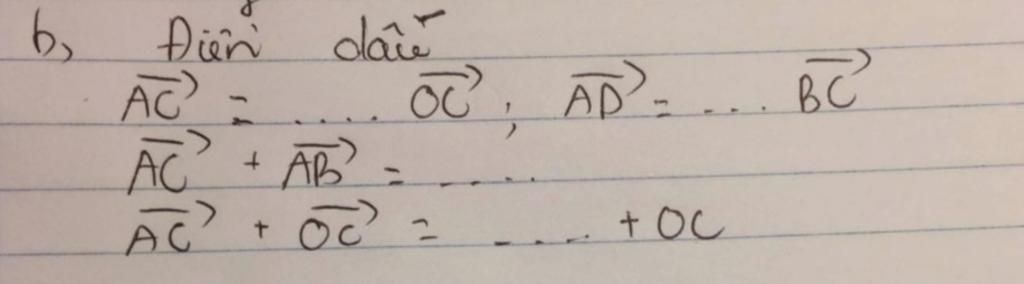 b, Điền dấu
\overrightarrow{AC} = .... \overrightarrow{OC} ; \overrightarrow{AD} = ... \overrightarrow{BC}
\overrightarrow{AC} + \overrightarrow{AB} = ....
\overrightarrow{AC} + \overrightarrow{OC} = .... + OC